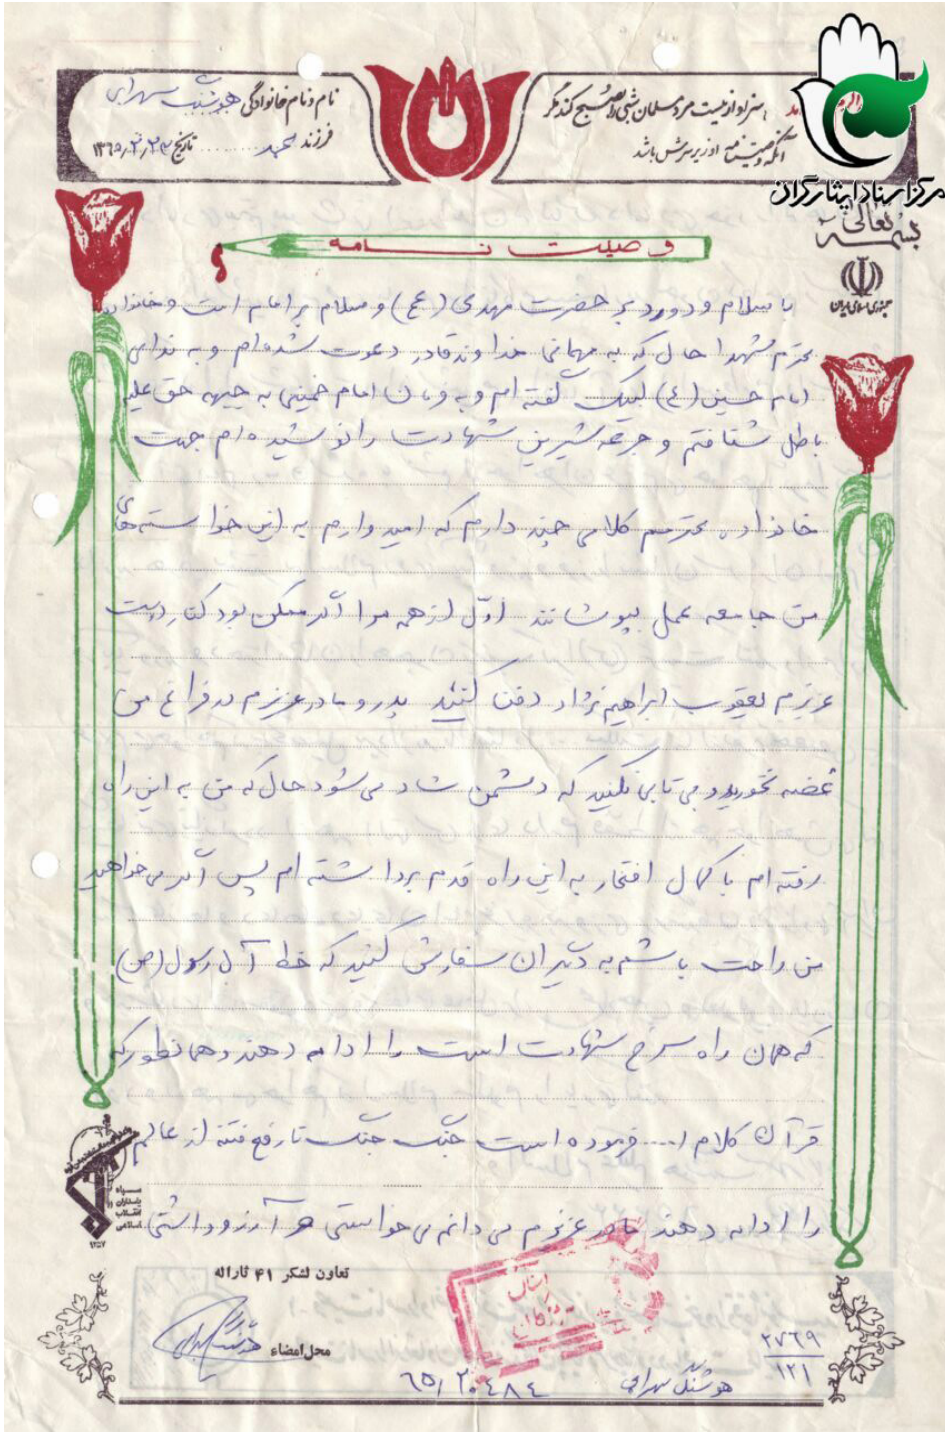 مرکز اسناد ایثارگران
نام و نام خانوادگی هوشنگ سهرابی
فرزند محمد تاریخ
سزاوار نیست مرد مسلمان شبی را صبح کند مگر
آنکه وصیتنامه او زیر سرش باشد
بسمه تعالی
جمهوری اسلامی ایران
وصیت نامه
با سلام و درود بر حضرت مهدی (عج) و سلام بر امام امت و خانواده
محترم شهدا حال که به مهمانی خداوند قادر دعوت شده‌ام و به ندای
امام حسین (ع) لبیک گفته ام و به فرمان امام خمینی به جبهه حق علیه
باطل شتافتم و جرعه شیرین شهادت را نوشیده ام جهت
خانواده محترمم کلامی چند دارم که امیدوارم به این خواسته‌های
من جامعه عمل بپوشانند اوّل از همه مرا اگر ممکن بود کنار دوست
عزیزم یعقوب ابراهیم نژاد دفن کنید پدر و مادر عزیزم در فراغ من
غصه نخورید و بی تابی نکنید که دشمن شاد می شود حال که من به این راه
رفته ام با کمال افتخار به این راه قدم برداشته ام پس اگر می خواهید
من راحت باشم به دیگران سفارش کنید که خط آل رسول (ص)
که همان راه سرخ شهادت است را ادامه دهند و همانطور که
قرآن کلام ا... فرموده است جنگ جنگ تا رفع فتنه از عالم
را ادامه دهند مادر عزیزم می دانم می خواستی هر آرزو داشتی
سپاه
پاسداران
انقلاب
اسلامی
۱۳۵۷
تعاون لشکر ۴۱ ثاراله
محل امضاء
هوشنگ سهرابی
۲۷۶۹
۱۲۱